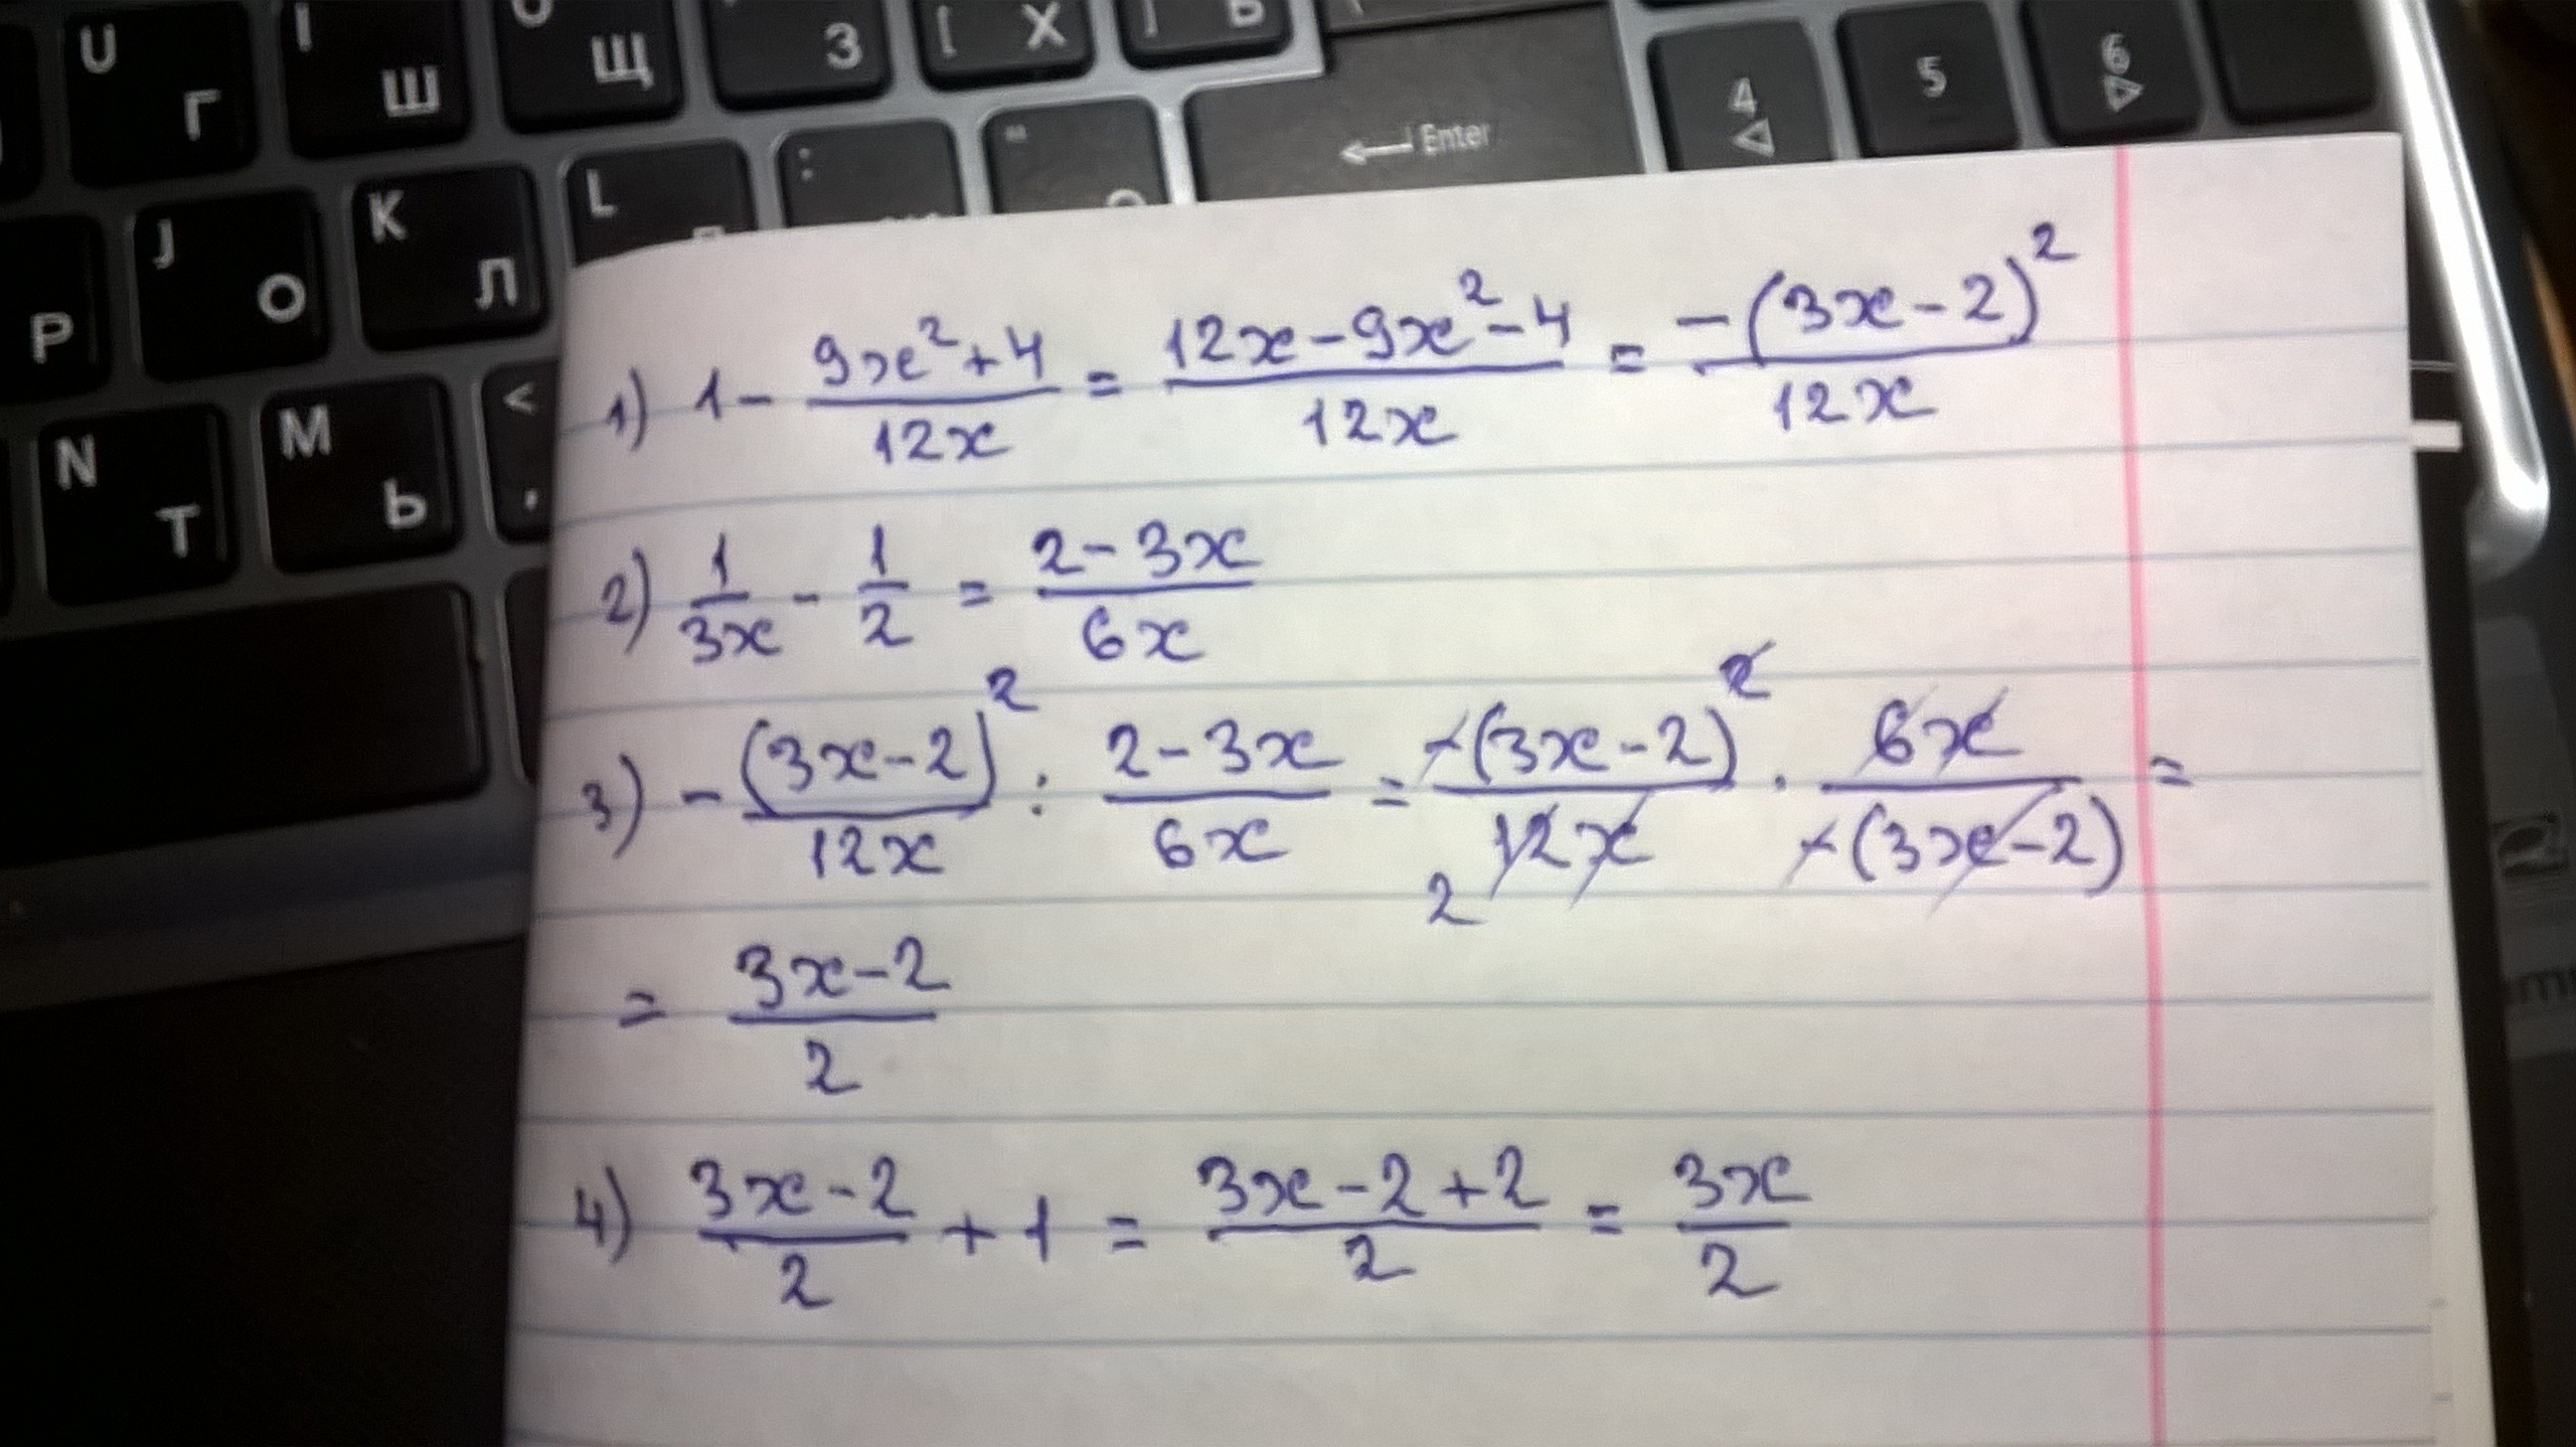 U Г I Ш O Щ З [ Х ] Ъ
4 5 6
P J О K Л L : " ← Enter
N Т M Ь < ,
1) 1 - (9x² + 4)/(12x) = (12x - 9x² - 4)/(12x) = (-(3x - 2)²)/(12x)
2) 1/(3x) - 1/2 = (2 - 3x)/(6x)
3) -(3x - 2)²/(12x) : (2 - 3x)/(6x) = (-(3x - 2)²)/(12x) 2 · (6x)/(-(3x - 2)) =
= (3x - 2)/2
4) (3x - 2)/2 + 1 = (3x - 2 + 2)/2 = (3x)/2